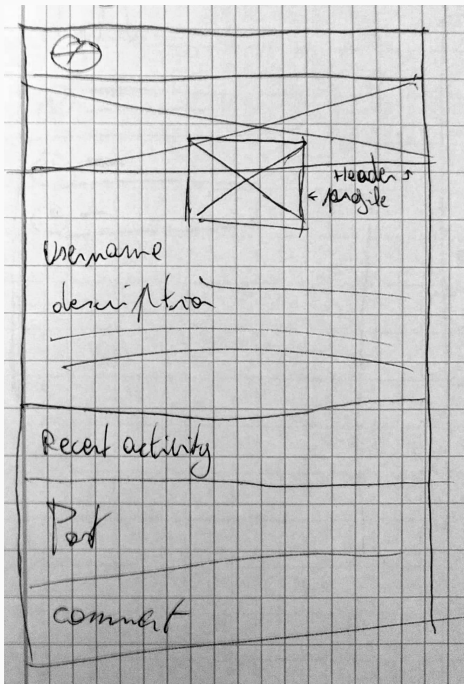 Header ↑
← profile
Username
description
Recent activity
Post
comment